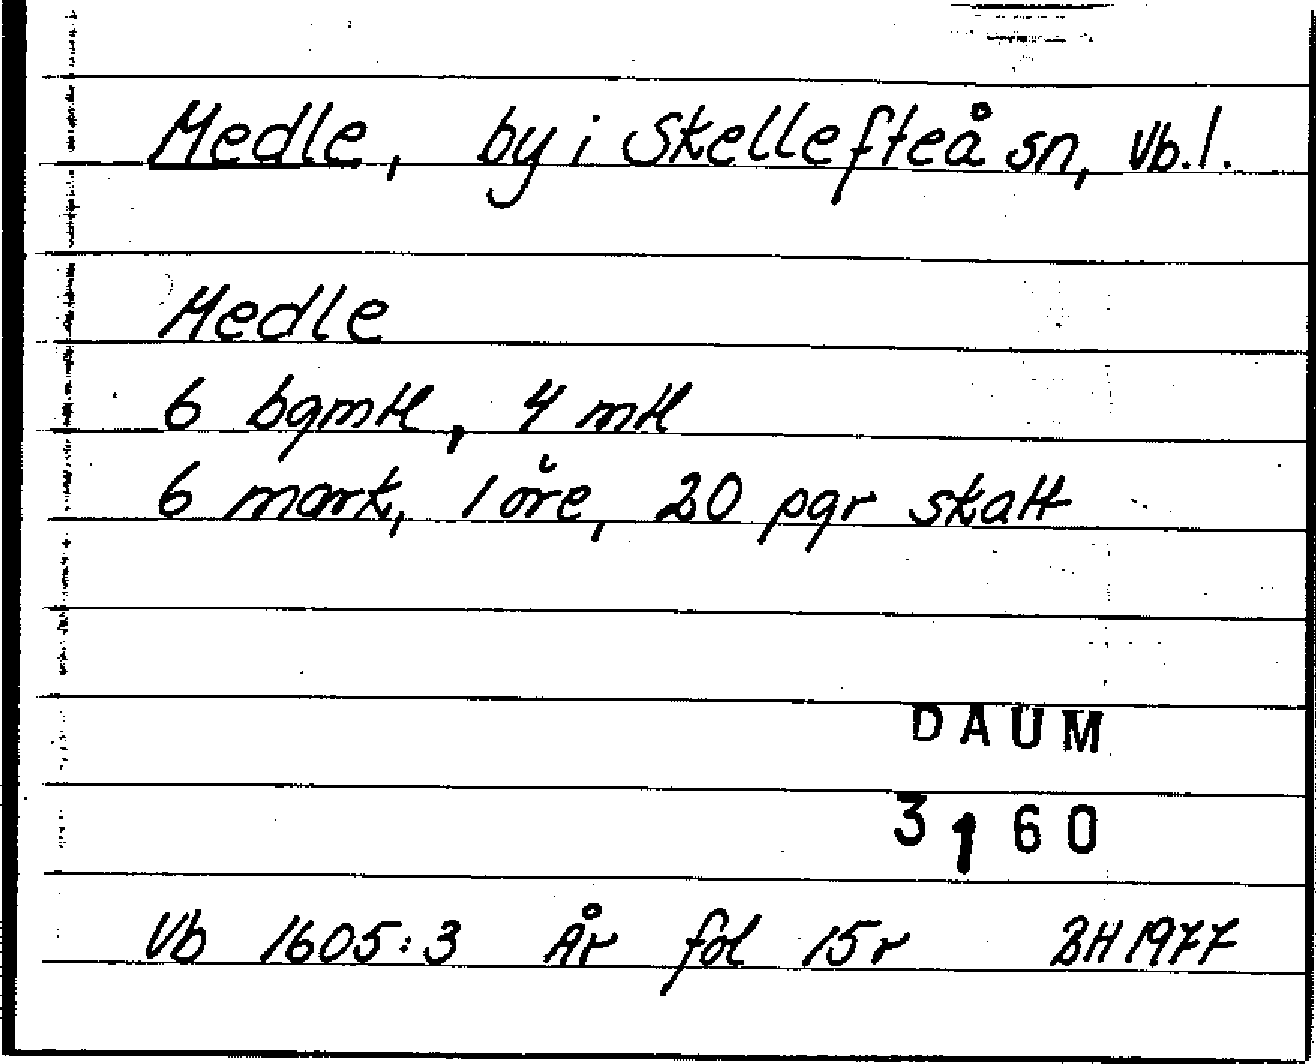 Medle, by i Skellefteå sn, Vb.l.
Medle
6 bgmtl, 4 mtl
6 mark, 1 öre, 20 pgr skatt
DAUM
3160
Vb 1605:3 År fol 15r BH 1977